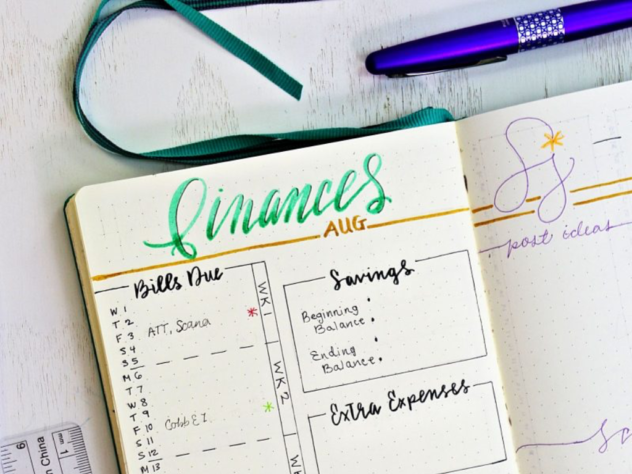 finances
AUG
Bills Due
W 1
T 2
F 3 ATT, Scana
S 4
S 5
M 6
T 7
W 8
T 9
F 10
S 11
S 12
M 13
WK 1
WK 2
Savings
Beginning
Balance:
Ending
Balance:
Extra Expenses
post ideas
China
6
1